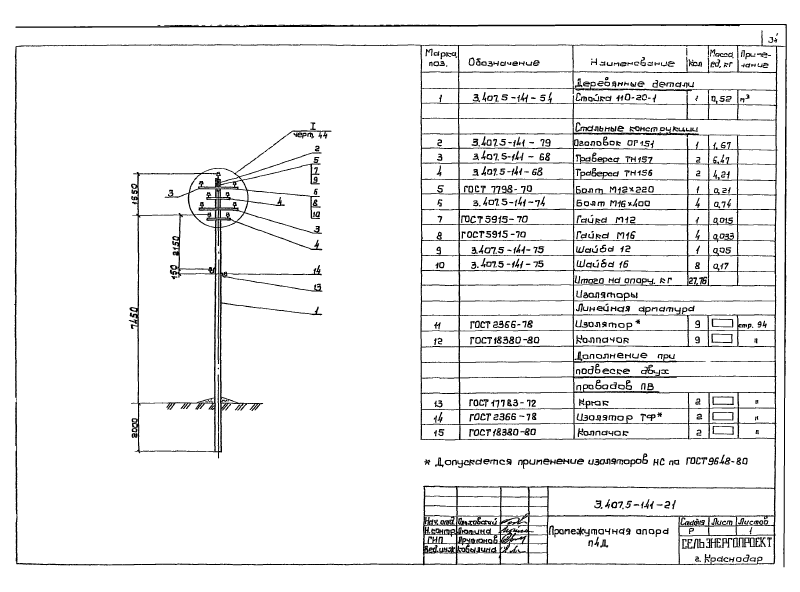 34
Марка, поз. Обозначение Наименование Кол Масса ед, кг Приме-чание
Деревянные детали
1 3.407.5-141-54 Стойка 110-20-1 1 0,52 м³
Стальные конструкции
2 3.407.5-141-79 Оголовок ОГ151 1 1,67
3 3.407.5-141-68 Траверса ТН157 2 6,47
4 3.407.5-141-68 Траверса ТН156 2 4,21
5 ГОСТ 7798-70 Болт М12×220 1 0,21
6 3.407.5-141-74 Болт М16×400 4 0,74
7 ГОСТ 5915-70 Гайка М12 1 0,015
8 ГОСТ 5915-70 Гайка М16 4 0,033
9 3.407.5-141-75 Шайба 12 1 0,05
10 3.407.5-141-75 Шайба 16 8 0,17
Итого на опору, кг 27,76
Изоляторы
Линейная арматура
11 ГОСТ 2366-78 Изолятор* 9 стр. 94
12 ГОСТ 18380-80 Колпачок 9 "
Дополнение при
подвеске двух
проводов ПВ
13 ГОСТ 17783-72 Крюк 2 "
14 ГОСТ 2366-78 Изолятор ТФ* 2 "
15 ГОСТ 18380-80 Колпачок 2 "
* Допускается применение изоляторов НС по ГОСТ 9648-80
I
черт. 44
2
5
7
9
6
8
10
3
4
3
4
14
13
1
1650
2150
150
7450
2000
3.407.5-141-21
Нач. отд.
Н.контр. Люпина
ГИП
Вед.инж. Ковылина
Промежуточная опора
П4Д
Стадия Лист Листов
Р 1
СЕЛЬЭНЕРГОПРОЕКТ
г. Краснодар